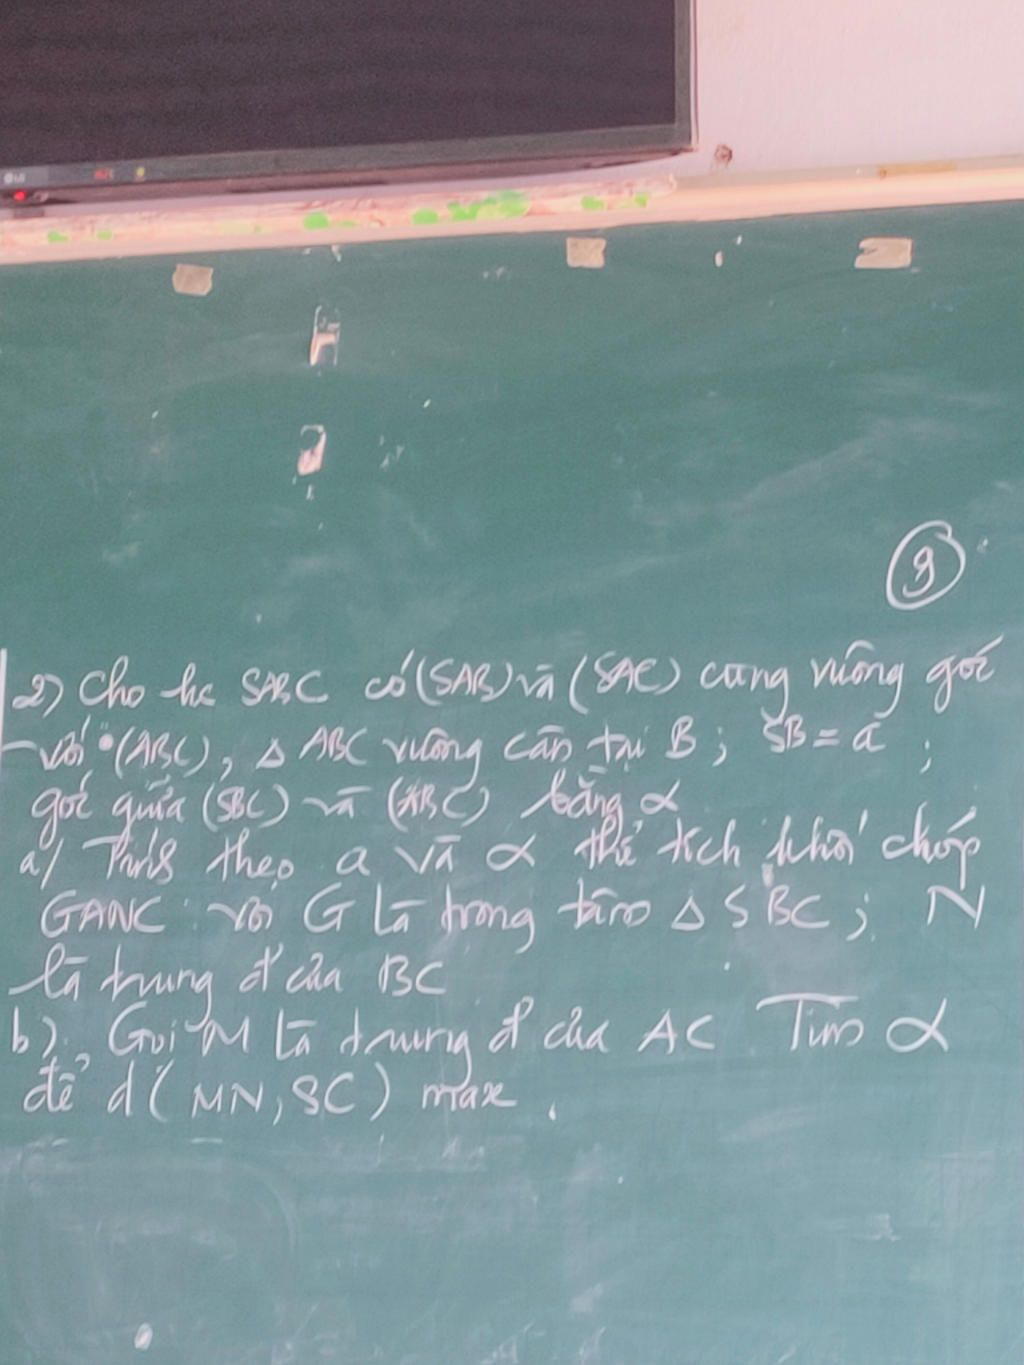 LG
9
2) Cho hc SABC có (SAB) và (SAC) cùng vuông góc
với (ABC), Δ ABC vuông cân tại B; SB = a ;
góc giữa (SBC) và (ABC) bằng α
a/ Tính theo a và α thể tích khối chóp
GANC với G là trọng tâm Δ SBC; N
là trung đ' của BC
b). Gọi M là trung đ' của AC Tìm α
để d(MN, SC) max.